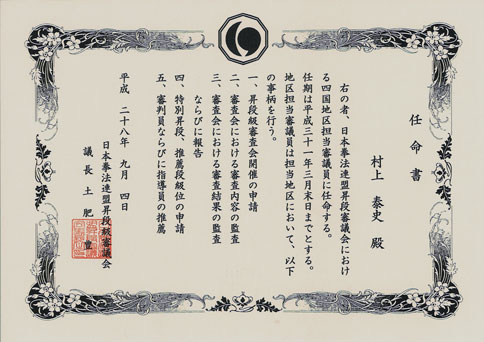 任命書
村上 泰史 殿
右の者、日本拳法連盟昇段審議会におけ
る四国地区担当審議員に任命する。
任期は平成三十一年三月末日までとする。
地区担当審議員は担当地区において、以下
の事柄を行う。
一、昇段級審査会開催の申請
二、審査会における審査内容の監査
三、審査会における審査結果の監査
ならびに報告
四、特別昇段、推薦段級位の申請
五、審判員ならびに指導員の推薦
平成 二十八年 九月 四日
日本拳法連盟昇段級審議会
議長 土肥 豊